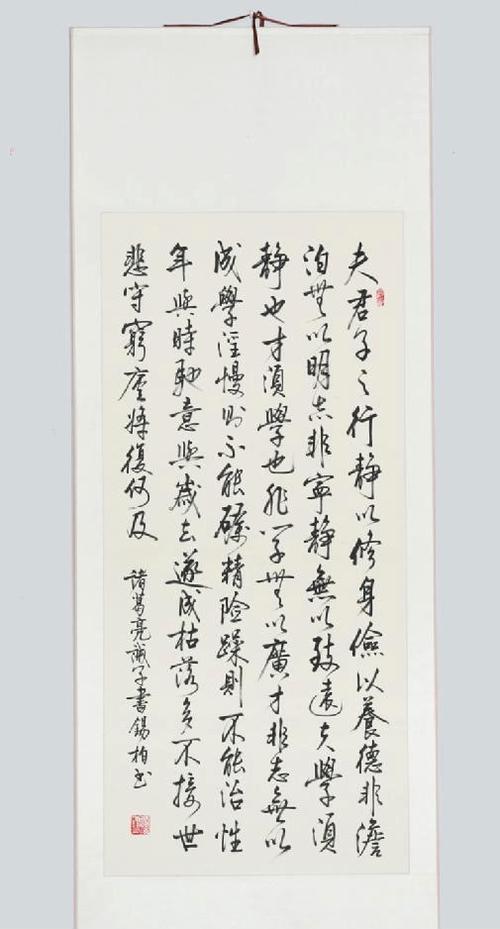 夫君子之行静以修身儉以養德非澹
泊無以明志非寧静無以致遠夫學須
静也才須學也非學無以廣才非志無以
成學淫慢則不能礪精險躁則不能治性
年與時馳意與歲去遂成枯落多不接世
悲守窮廬將復何及
諸葛亮誡子書錫柏书